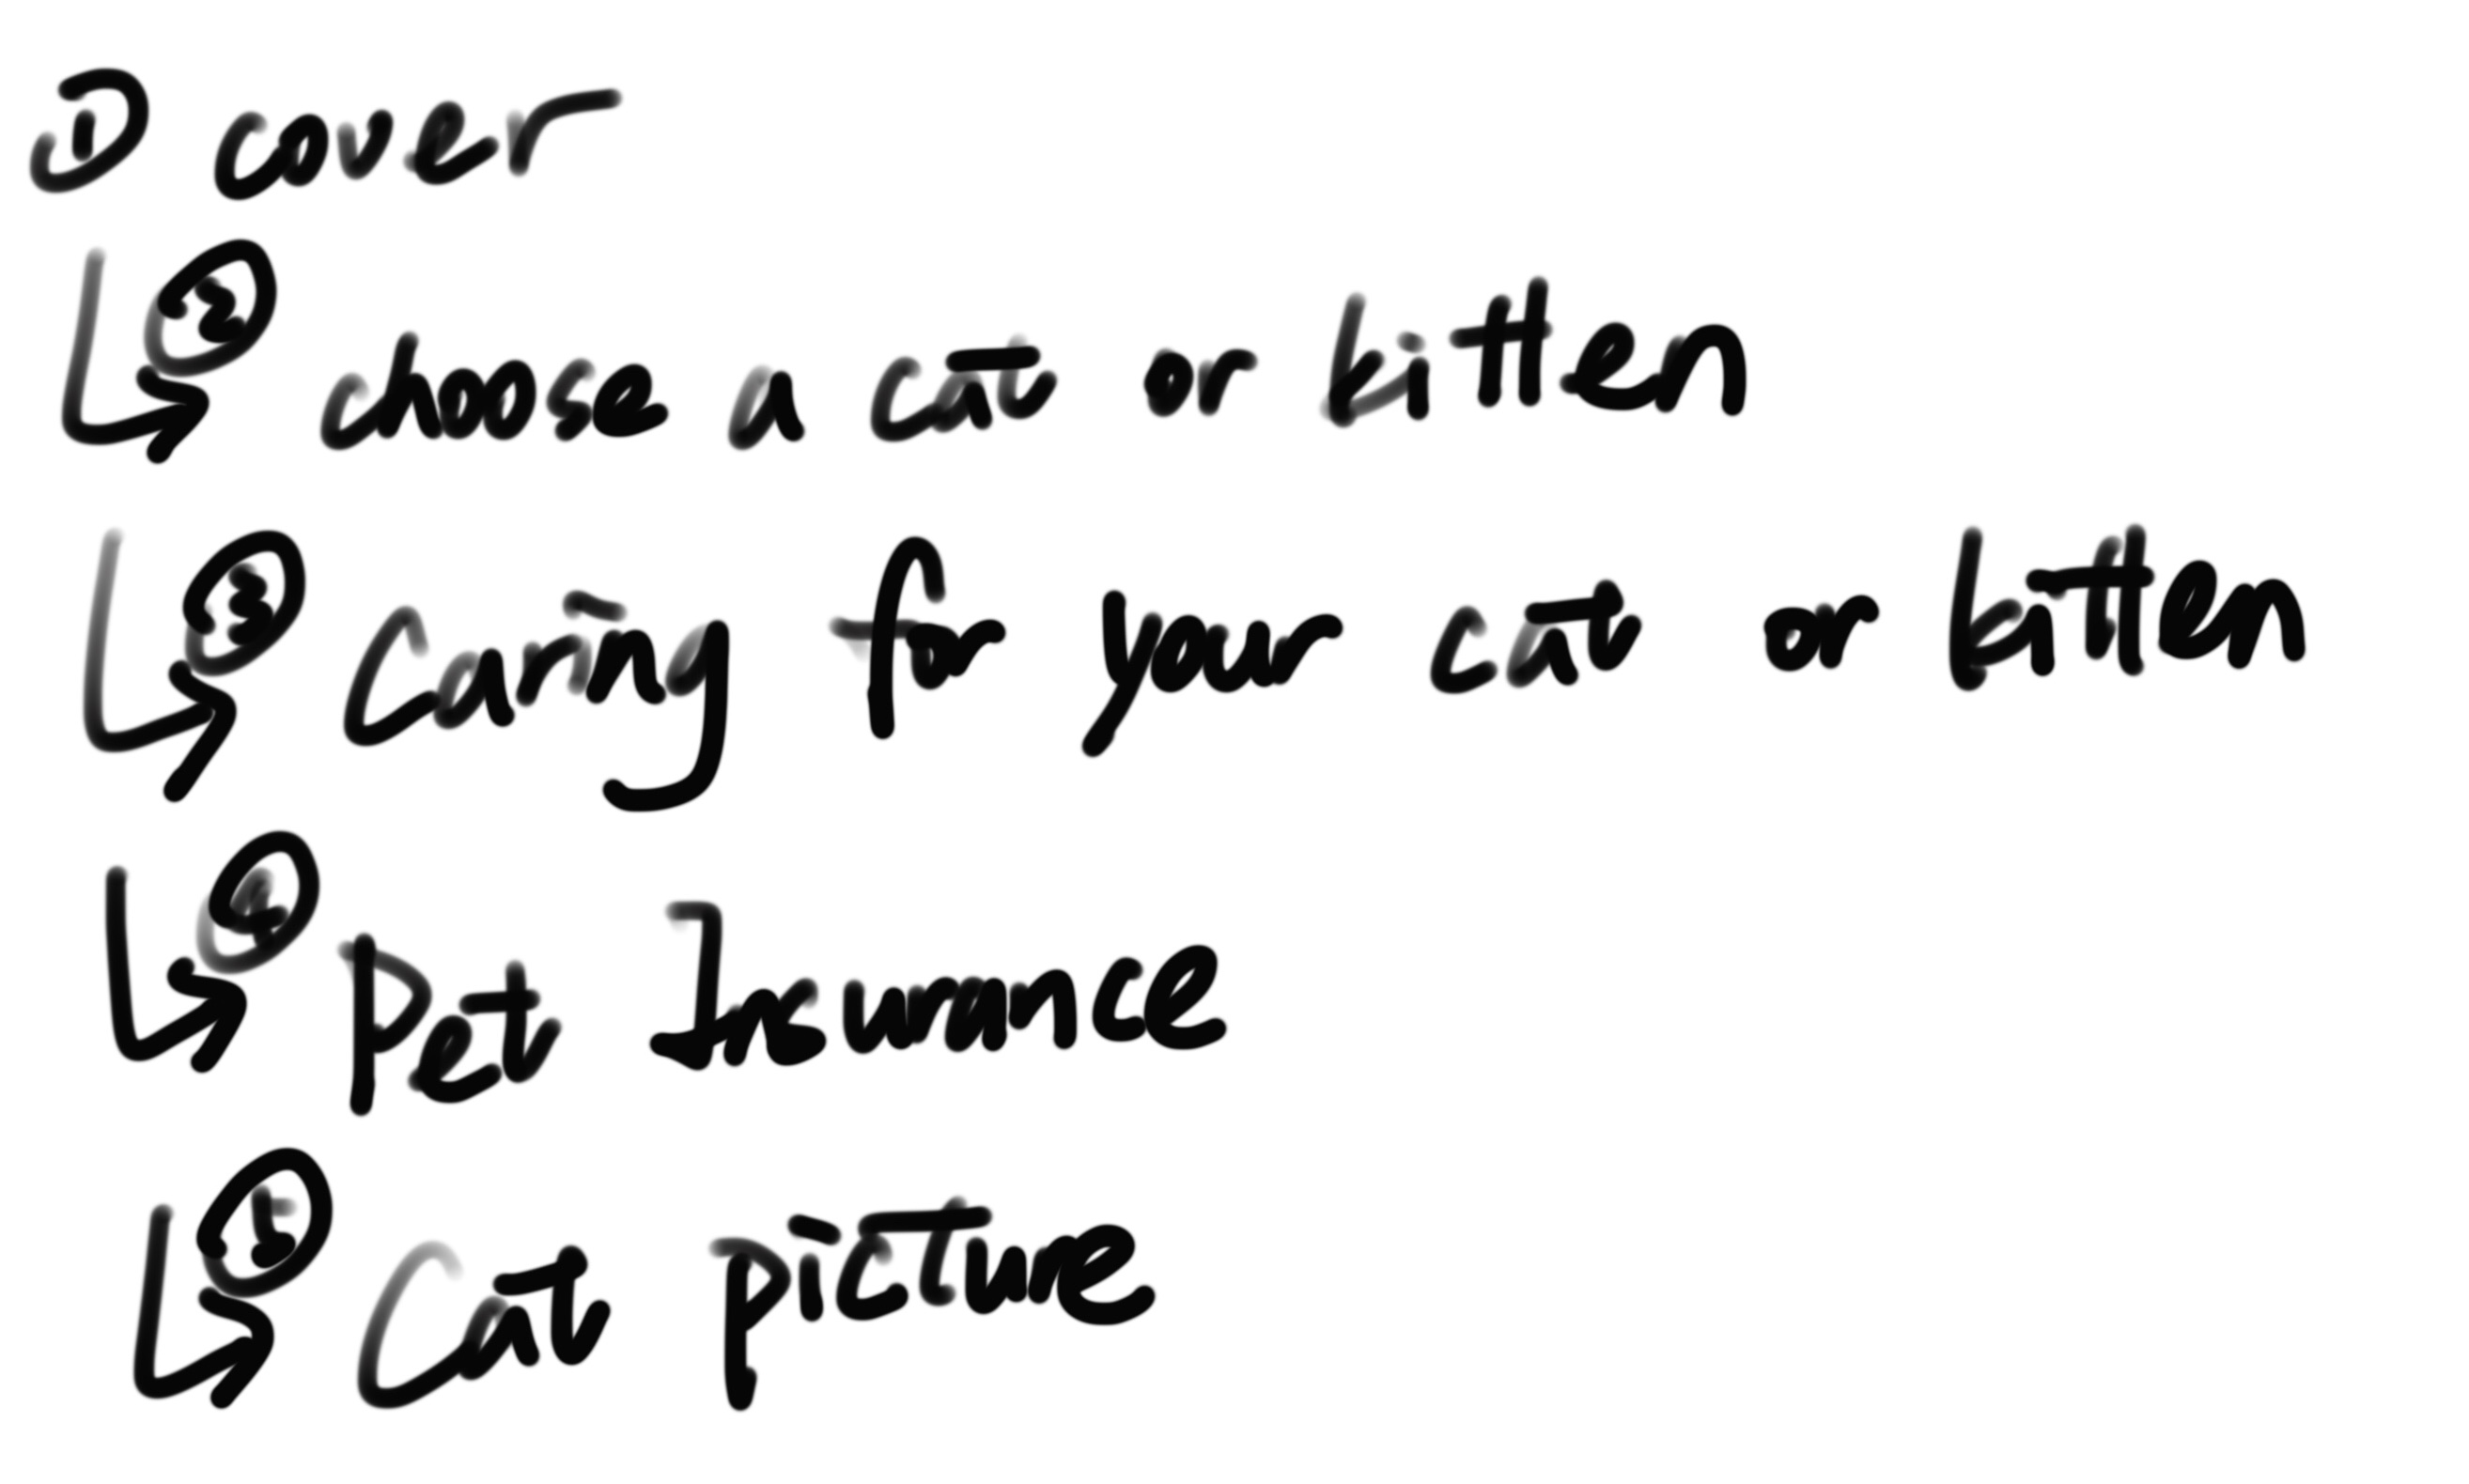 ① cover
② choose a cat or kitten
③ Caring for your cat or kitten
④ Pet Insurance
⑤ Cat picture